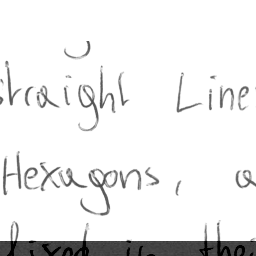 straight Line
Hexagons, a